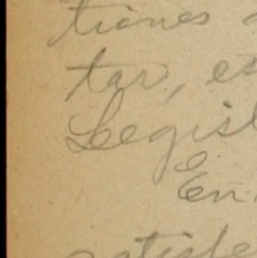 tiones
tar, es
Legisl
En
satisfe